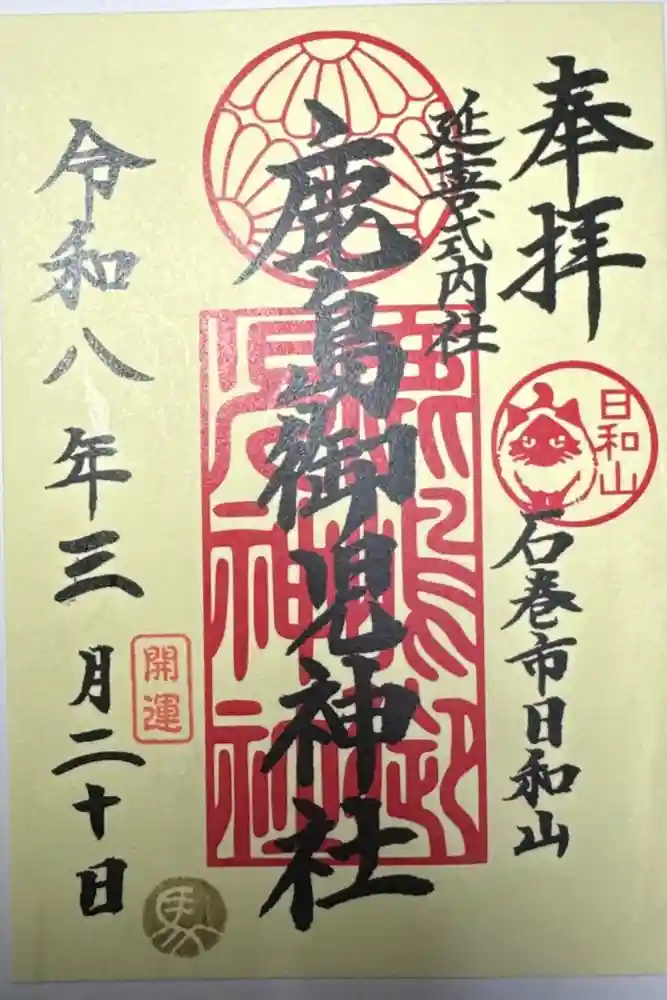 奉拝
延喜式内社
日和山
石巻市日和山
鹿島御児神社
鹿島御児神社
開運
令和八年三月二十日
馬